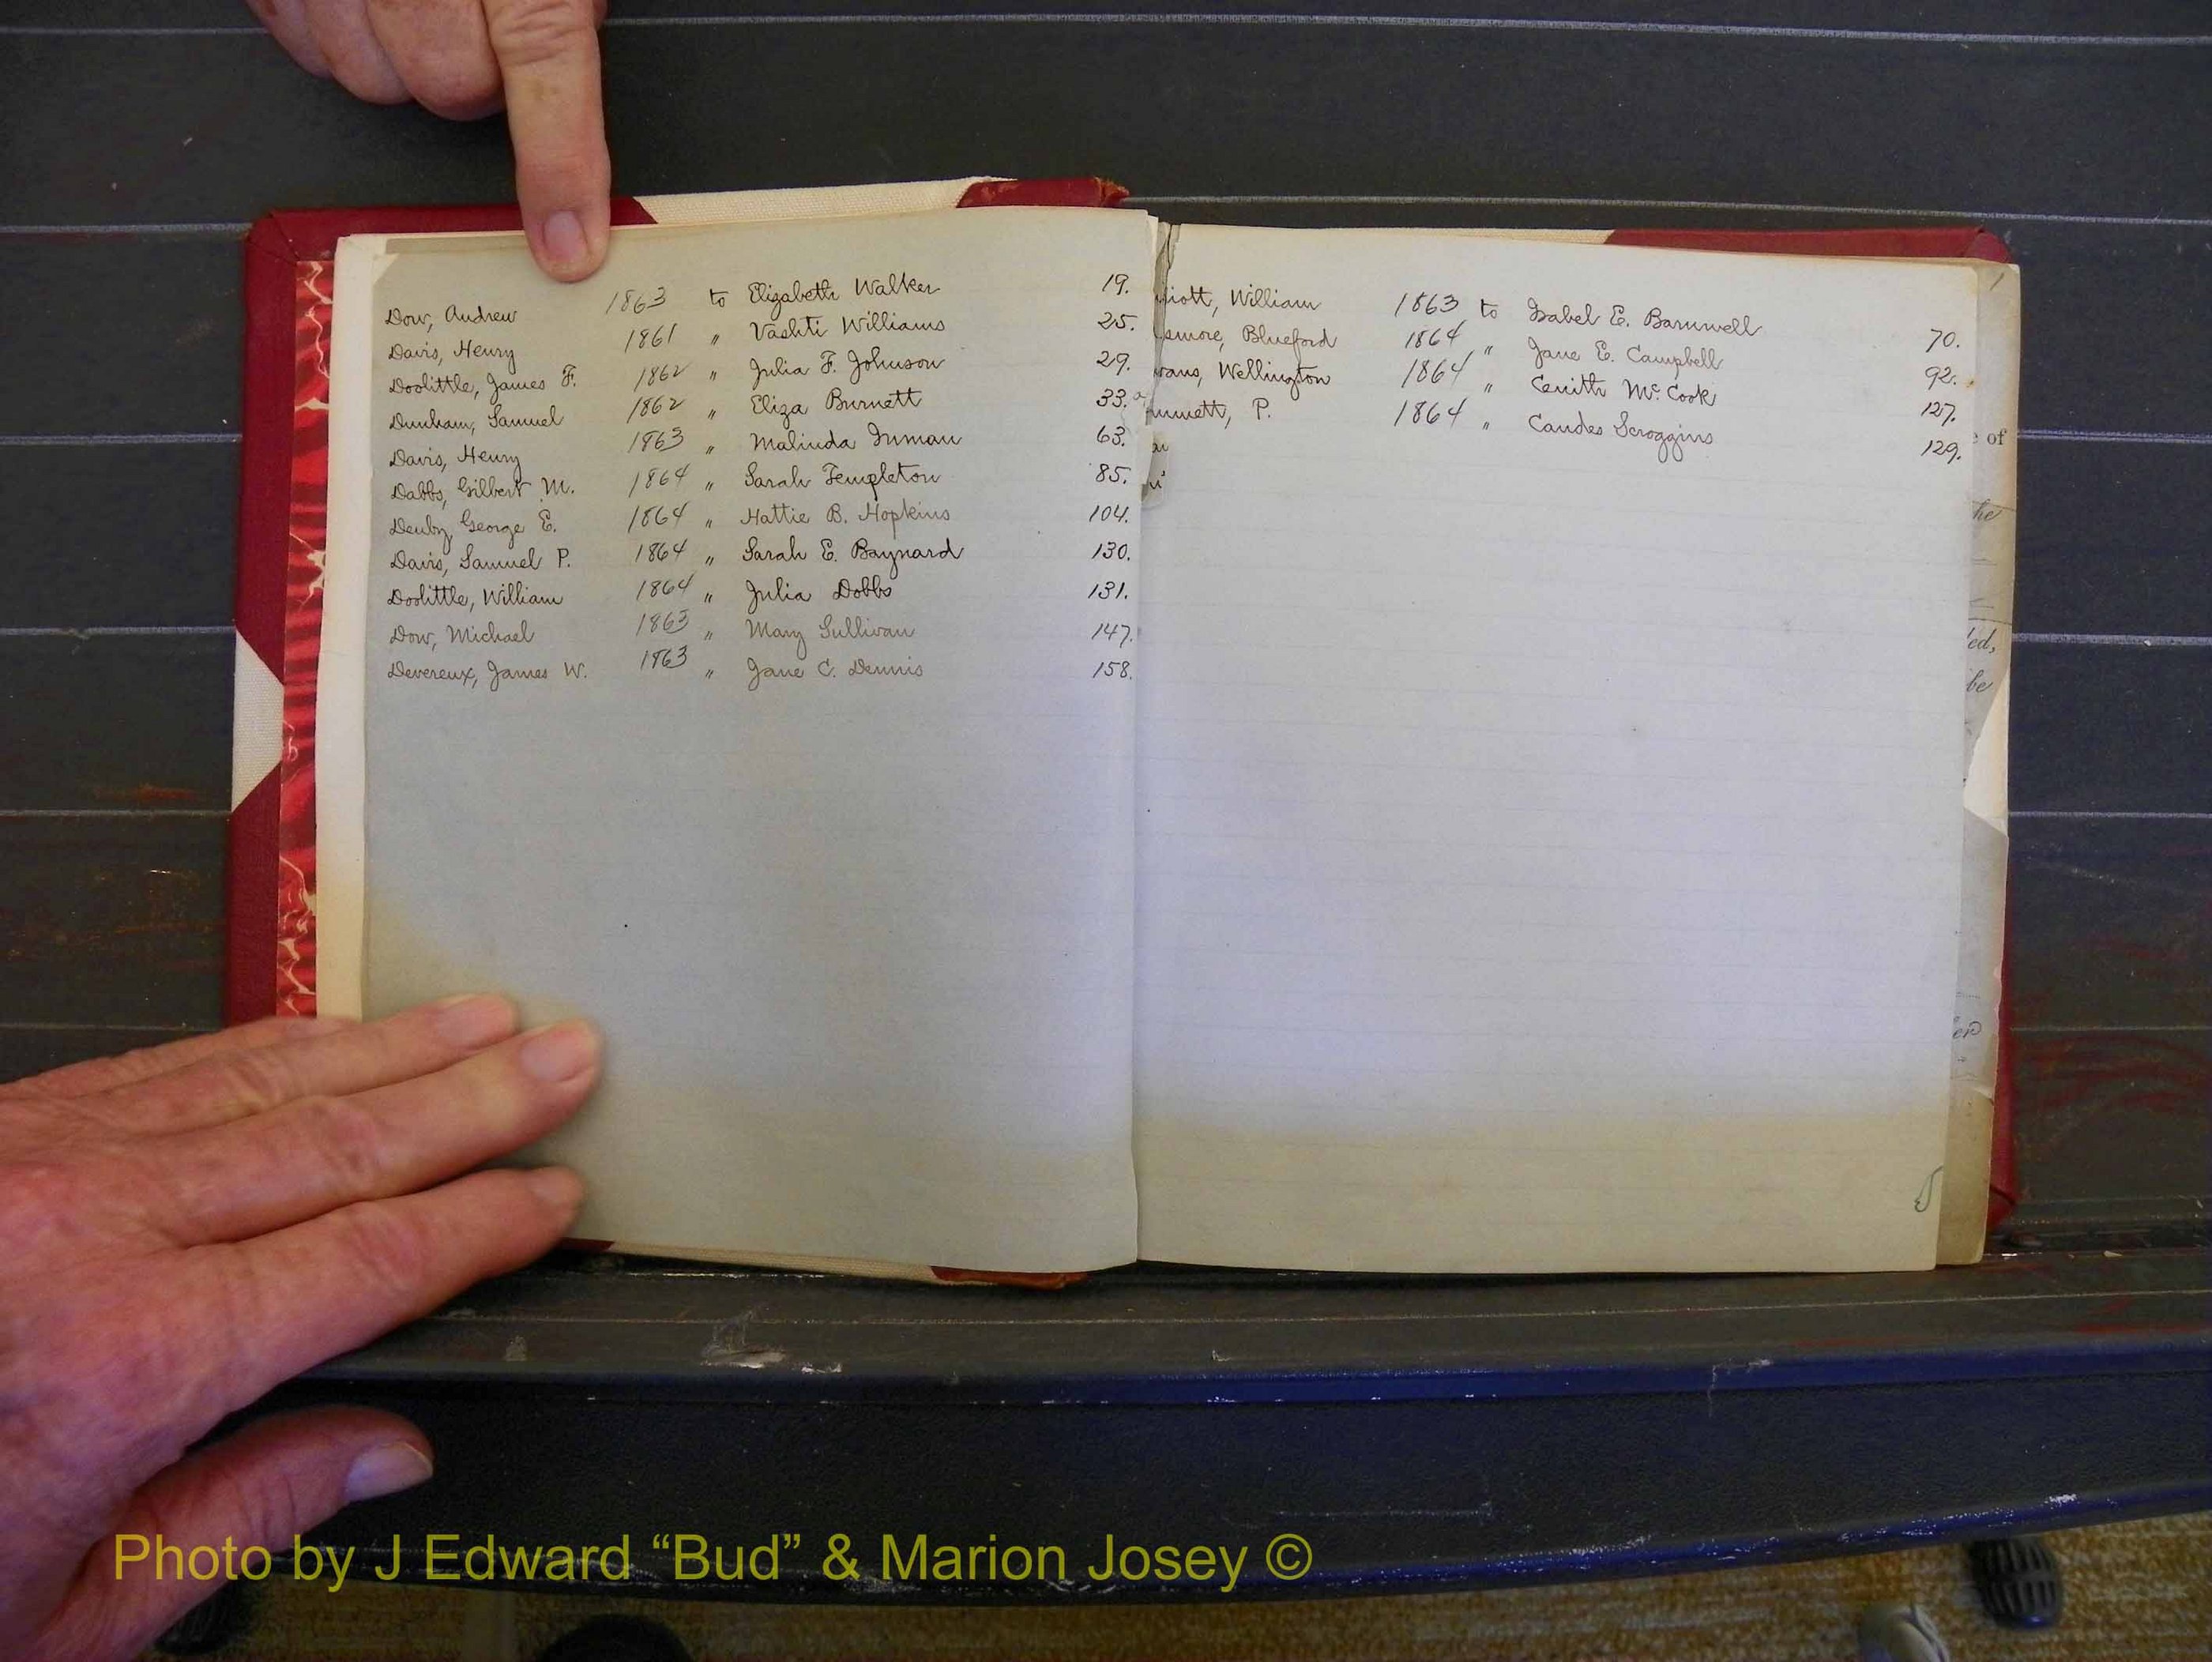 Dow, Andrew 1863 to Elizabeth Walker 19.
Davis, Henry 1861 " Vashti Williams 25.
Doolittle, James F. 1862 " Julia F. Johnson 29.
Dunham, Samuel 1862 " Eliza Burnett 33.
Davis, Henry 1863 " Malinda Inman 63.
Dabbs, Gilbert M. 1864 " Sarah Templeton 85.
Denby George E. 1864 " Hattie B. Hopkins 104.
Davis, Samuel P. 1864 " Sarah E. Baynard 130.
Doolittle, William 1864 " Julia Dobbs 131.
Dow, Michael 1863 " Mary Sullivan 147.
Devereux, James W. 1863 " Jane C. Dennis 158.
liott, William 1863 to Isabel E. Barnwell 70.
smore, Blueford 1864 " Jane E. Campbell 92.
vans, Wellington 1864 " Cenith McCook 127.
mmett, P. 1864 " Candes Scroggins 129.
1
of
the
led,
be
Photo by J Edward “Bud” & Marion Josey ©